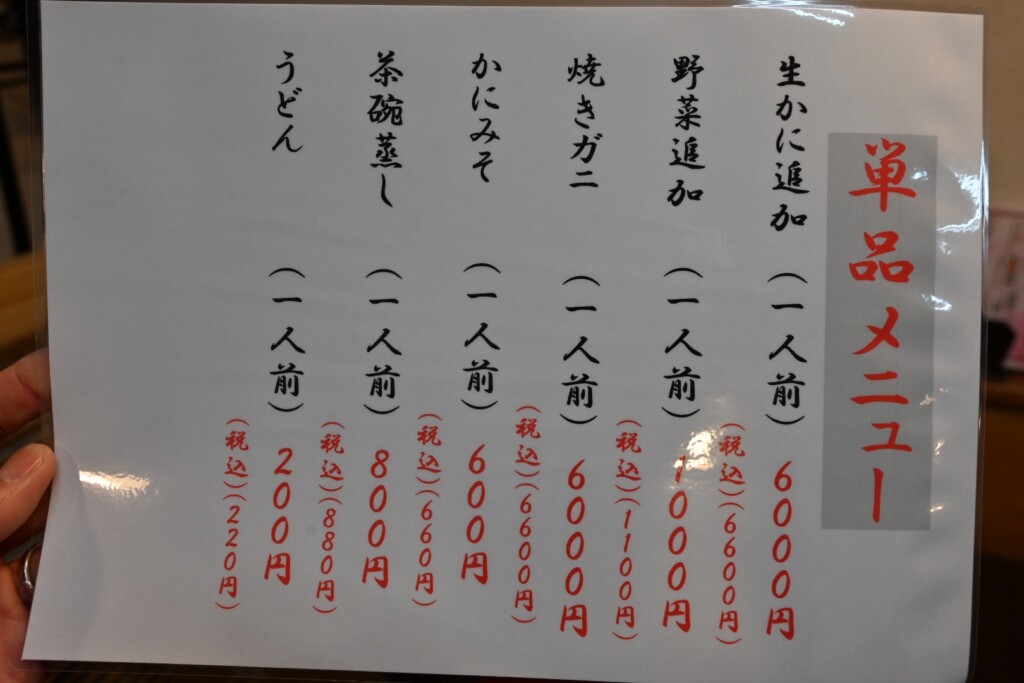 単品メニュー
生かに追加 (一人前) 6000円
(税込)(6600円)
野菜追加 (一人前) 1000円
(税込)(1100円)
焼きガニ (一人前) 6000円
(税込)(6600円)
かにみそ (一人前) 600円
(税込)(660円)
茶碗蒸し (一人前) 800円
(税込)(880円)
うどん (一人前) 200円
(税込)(220円)